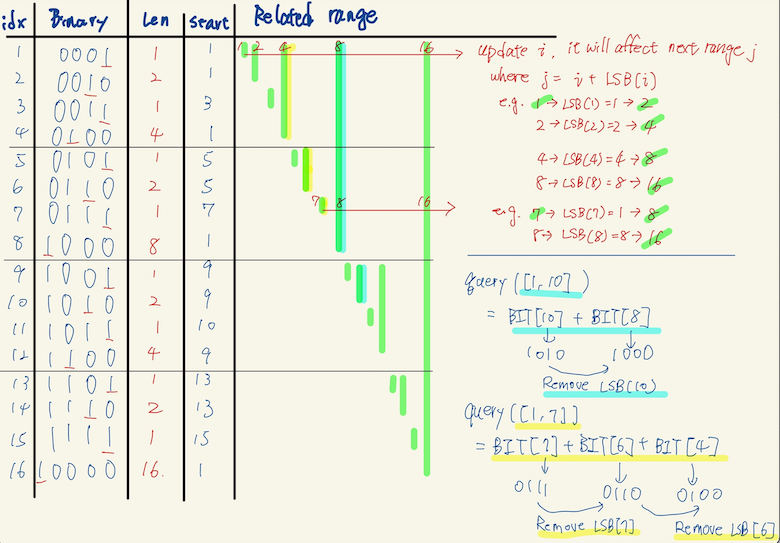 idx Binary Len start Related range
1 0001 1 1
2 0010 2 1
3 0011 1 3
4 0100 4 1
5 0101 1 5
6 0110 2 5
7 0111 1 7
8 1000 8 1
9 1001 1 9
10 1010 2 9
11 1011 1 10
12 1100 4 9
13 1101 1 13
14 1110 2 13
15 1111 1 15
16 10000 16. 1
1 2 4 8 16
7 8 16
update i, it will affect next range j
where j = i + LSB(i)
e.g. 1 → LSB(1) = 1 → 2
2 → LSB(2) = 2 → 4
4 → LSB(4) = 4 → 8
8 → LSB(8) = 8 → 16
e.g. 7 → LSB(7) = 1 → 8
8 → LSB(8) = 8 → 16
query([1, 10])
= BIT[10] + BIT[8]
1010 1000
Remove LSB(10)
query([1, 7])
= BIT[7] + BIT[6] + BIT[4]
0111 0110 0100
Remove LSB[7] Remove LSB[6]